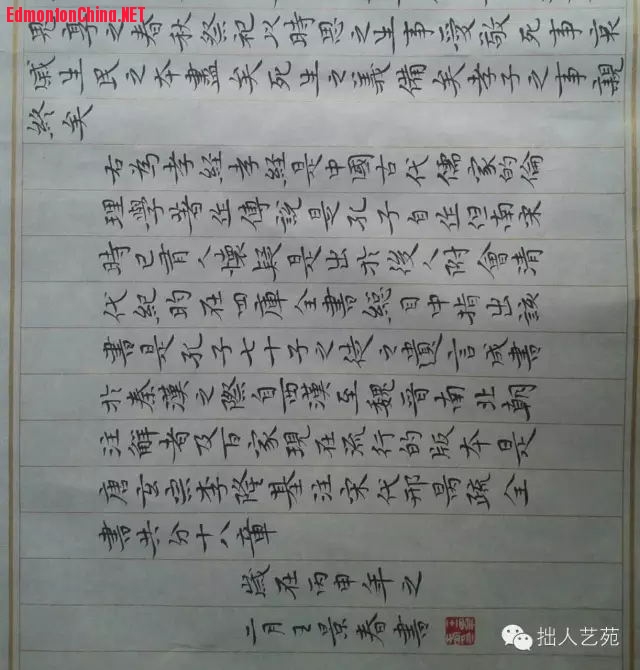 EdmontonChina.NET
鬼享之春秋祭祀以時思之生事愛敬死事哀
慼生民之本盡矣死生之義備矣孝子之事親
終矣
右為孝経孝経是中國古代儒家的倫
理學著作傳說是孔子自作但南宋
時已有人懷疑是出於後人附會清
代紀昀在四庫全書總目中指出該
書是孔子七十子之徒之遺言成書
於秦漢之際自西漢至魏晉南北朝
注解者及百家現在流行的版本是
唐玄宗李隆基注宋代邢昺疏全
書共分十八章
歲在丙申年之
二月王景春書
拙人艺苑